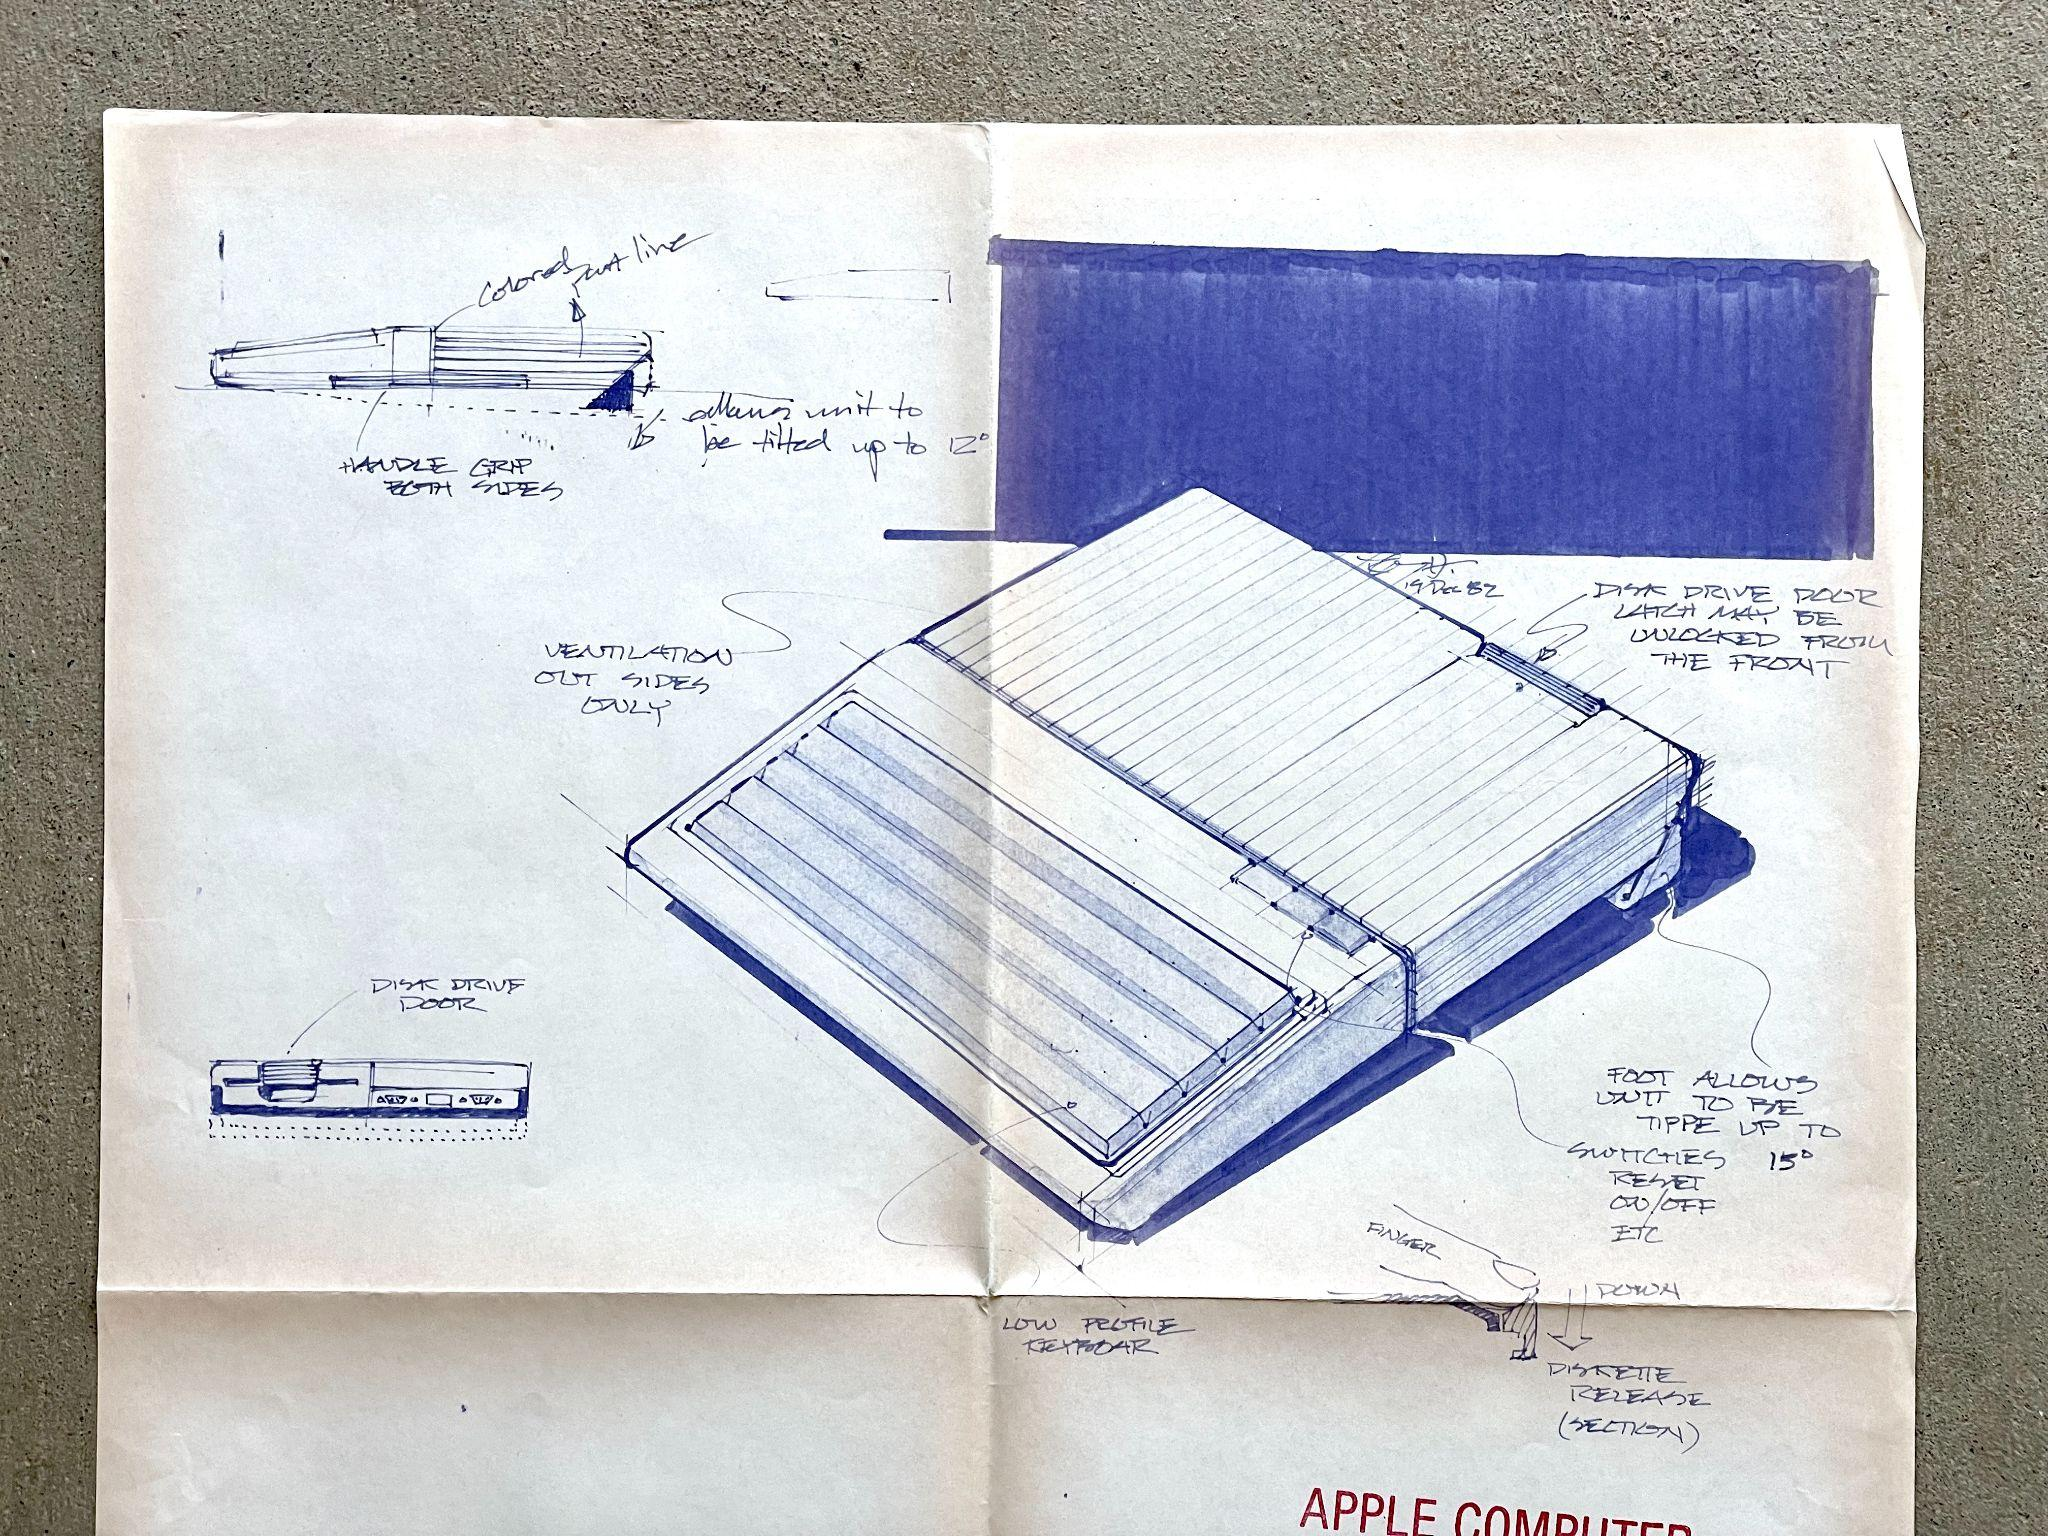 Colored part line
allows unit to
be tilted up to 12°
HANDLE GRIP
BOTH SIDES
19 Dec 82
DISK DRIVE DOOR
LATCH MAY BE
UNLOCKED FROM
THE FRONT
VENTILATION
OUT SIDES
ONLY
DISK DRIVE
DOOR
FOOT ALLOWS
UNIT TO BE
TIPPE UP TO
15°
SWITCHES
RESET
ON/OFF
ETC
FINGER
DOWN
LOW PROFILE
KEYBOAR
DISKETTE
RELEASE
(SECTION)
APPLE COMPUTER